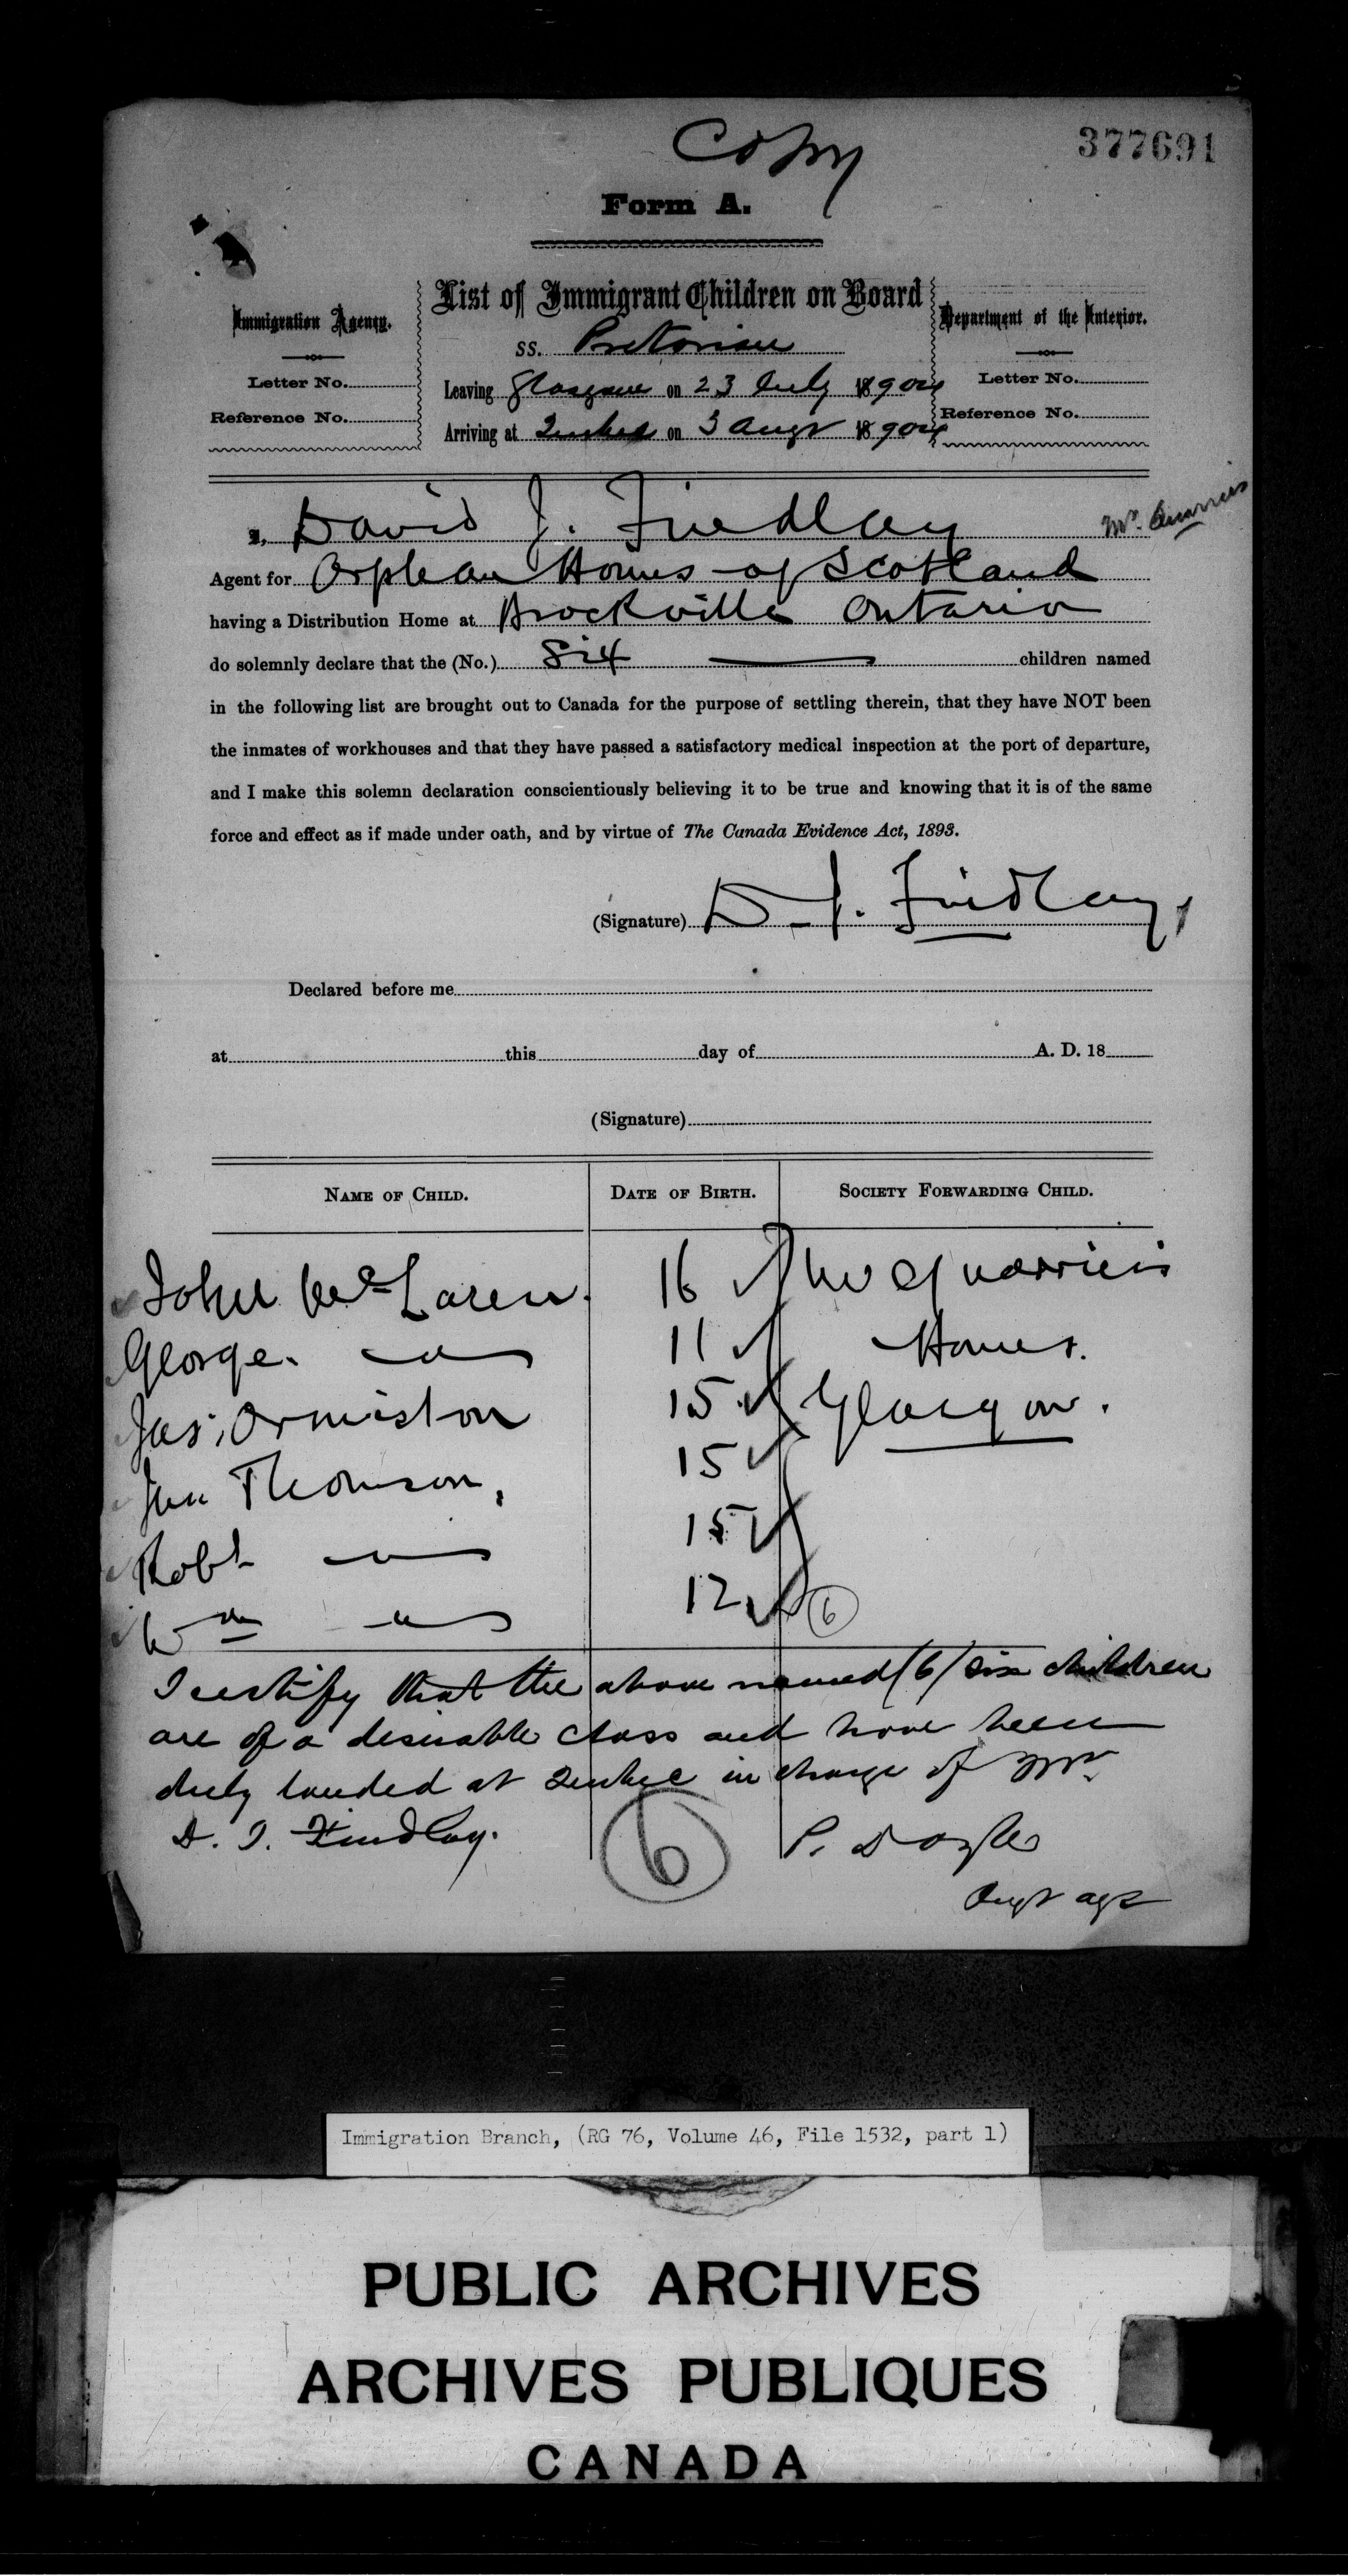 Copy
377691
Form A.
List of Immigrant Children on Board
Immigration Agency.
Department of the Interior.
SS. Pretorian
Letter No.
Letter No.
Leaving Glasgow on 23 July 18904
Reference No.
Reference No.
Arriving at Quebec on 3 Augt 18904
I, David J. Findlay
Mr. Quarries
Agent for Orphan Homes of Scotland
having a Distribution Home at Brockville Ontario
do solemnly declare that the (No.) Six children named
in the following list are brought out to Canada for the purpose of settling therein, that they have NOT been
the inmates of workhouses and that they have passed a satisfactory medical inspection at the port of departure,
and I make this solemn declaration conscientiously believing it to be true and knowing that it is of the same
force and effect as if made under oath, and by virtue of The Canada Evidence Act, 1893.
(Signature) D. J. Findlay
Declared before me
at this day of A. D. 18
(Signature)
NAME OF CHILD. DATE OF BIRTH. SOCIETY FORWARDING CHILD.
John McLaren. 16
George. " 11 Homes.
Jas. Ormiston 15 Glasgow.
Thomson, 15
Robt " 15
Wm " 12 6
I certify that the above named (6) six children
are of a desirable class and have been
duly landed at Quebec in charge of Mr
D. J. Findlay.
6
P. Doyle
agt
Immigration Branch, (RG 76, Volume 46, File 1532, part 1)
PUBLIC ARCHIVES
ARCHIVES PUBLIQUES
CANADA